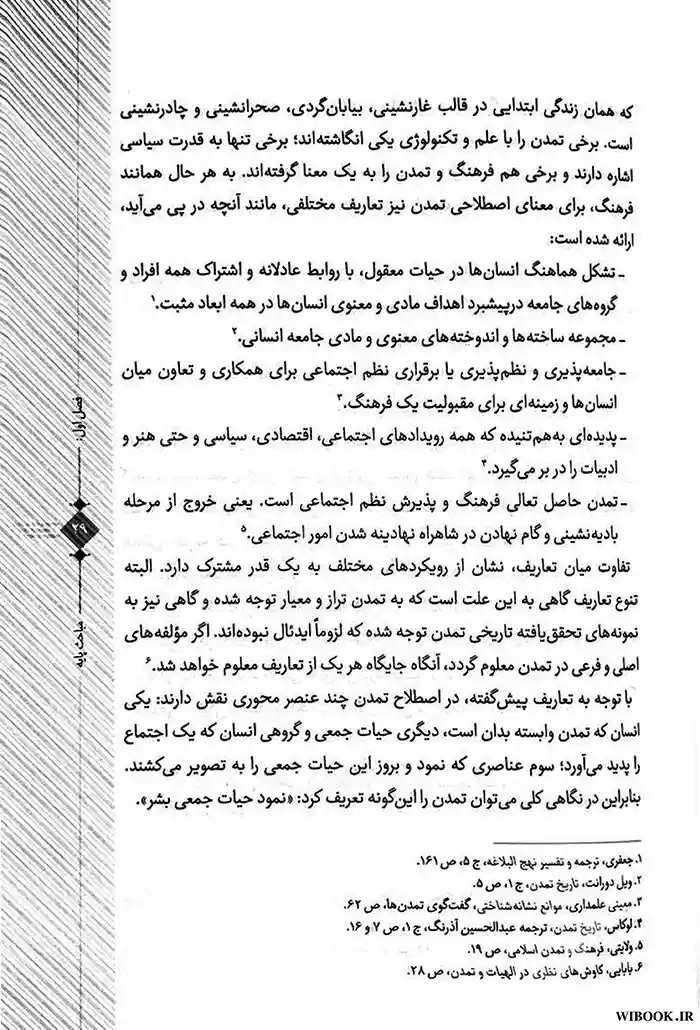 که همان زندگی ابتدایی در قالب غارنشینی، بیابان‌گردی، صحرانشینی و چادرنشینی
است. برخی تمدن را با علم و تکنولوژی یکی انگاشته‌اند؛ برخی تنها به قدرت سیاسی
اشاره دارند و برخی هم فرهنگ و تمدن را به یک معنا گرفته‌اند. به هر حال همانند
فرهنگ، برای معنای اصطلاحی تمدن نیز تعاریف مختلفی، مانند آنچه در پی می‌آید،
ارائه شده است:
ـ تشکل هماهنگ انسان‌ها در حیات معقول، با روابط عادلانه و اشتراک همه افراد و
گروه‌های جامعه درپیشبرد اهداف مادی و معنوی انسان‌ها در همه ابعاد مثبت.۱
ـ مجموعه ساخته‌ها و اندوخته‌های معنوی و مادی جامعه انسانی.۲
ـ جامعه‌پذیری و نظم‌پذیری یا برقراری نظم اجتماعی برای همکاری و تعاون میان
انسان‌ها و زمینه‌ای برای مقبولیت یک فرهنگ.۳
ـ پدیده‌ای به‌هم‌تنیده که همه رویدادهای اجتماعی، اقتصادی، سیاسی و حتی هنر و
ادبیات را در بر می‌گیرد.۴
ـ تمدن حاصل تعالی فرهنگ و پذیرش نظم اجتماعی است. یعنی خروج از مرحله
بادیه‌نشینی و گام نهادن در شاهراه نهادینه شدن امور اجتماعی.۵
تفاوت میان تعاریف، نشان از رویکردهای مختلف به یک قدر مشترک دارد. البته
تنوع تعاریف گاهی به این علت است که به تمدن تراز و معیار توجه شده و گاهی نیز به
نمونه‌های تحقق‌یافته تاریخی تمدن توجه شده که لزوماً ایدئال نبوده‌اند. اگر مؤلفه‌های
اصلی و فرعی در تمدن معلوم گردد، آنگاه جایگاه هر یک از تعاریف معلوم خواهد شد.۶
با توجه به تعاریف پیش‌گفته، در اصطلاح تمدن چند عنصر محوری نقش دارند: یکی
انسان که تمدن وابسته بدان است، دیگری حیات جمعی و گروهی انسان که یک اجتماع
را پدید می‌آورد؛ سوم عناصری که نمود و بروز این حیات جمعی را به تصویر می‌کشند.
بنابراین در نگاهی کلی می‌توان تمدن را این‌گونه تعریف کرد: «نمود حیات جمعی بشر».
۱. جعفری، ترجمه و تفسیر نهج البلاغه، ج ۵، ص ۱۶۱.
۲. ویل دورانت، تاریخ تمدن، ج ۱، ص ۵.
۳. معینی علمداری، موانع نشانه‌شناختی، گفت‌گوی تمدن‌ها، ص ۶۲.
۴. لوکاس، تاریخ تمدن، ترجمه عبدالحسین آذرنگ، ج ۱، ص ۷ و ۱۶.
۵. ولایتی، فرهنگ و تمدن اسلامی، ص ۱۹.
۶. بابایی، کاوش‌های نظری در الهیات و تمدن، ص ۲۸.
فصل اول:
۲۹
مباحث پایه
WIBOOK.IR